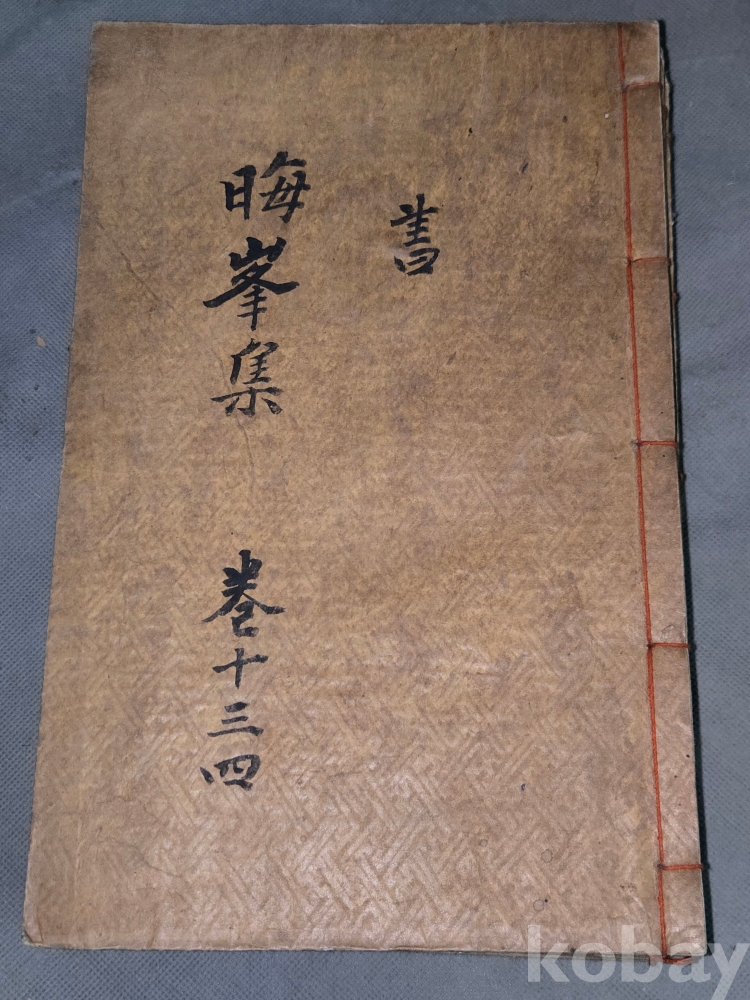 書
晦峯集
卷十三四
kobay